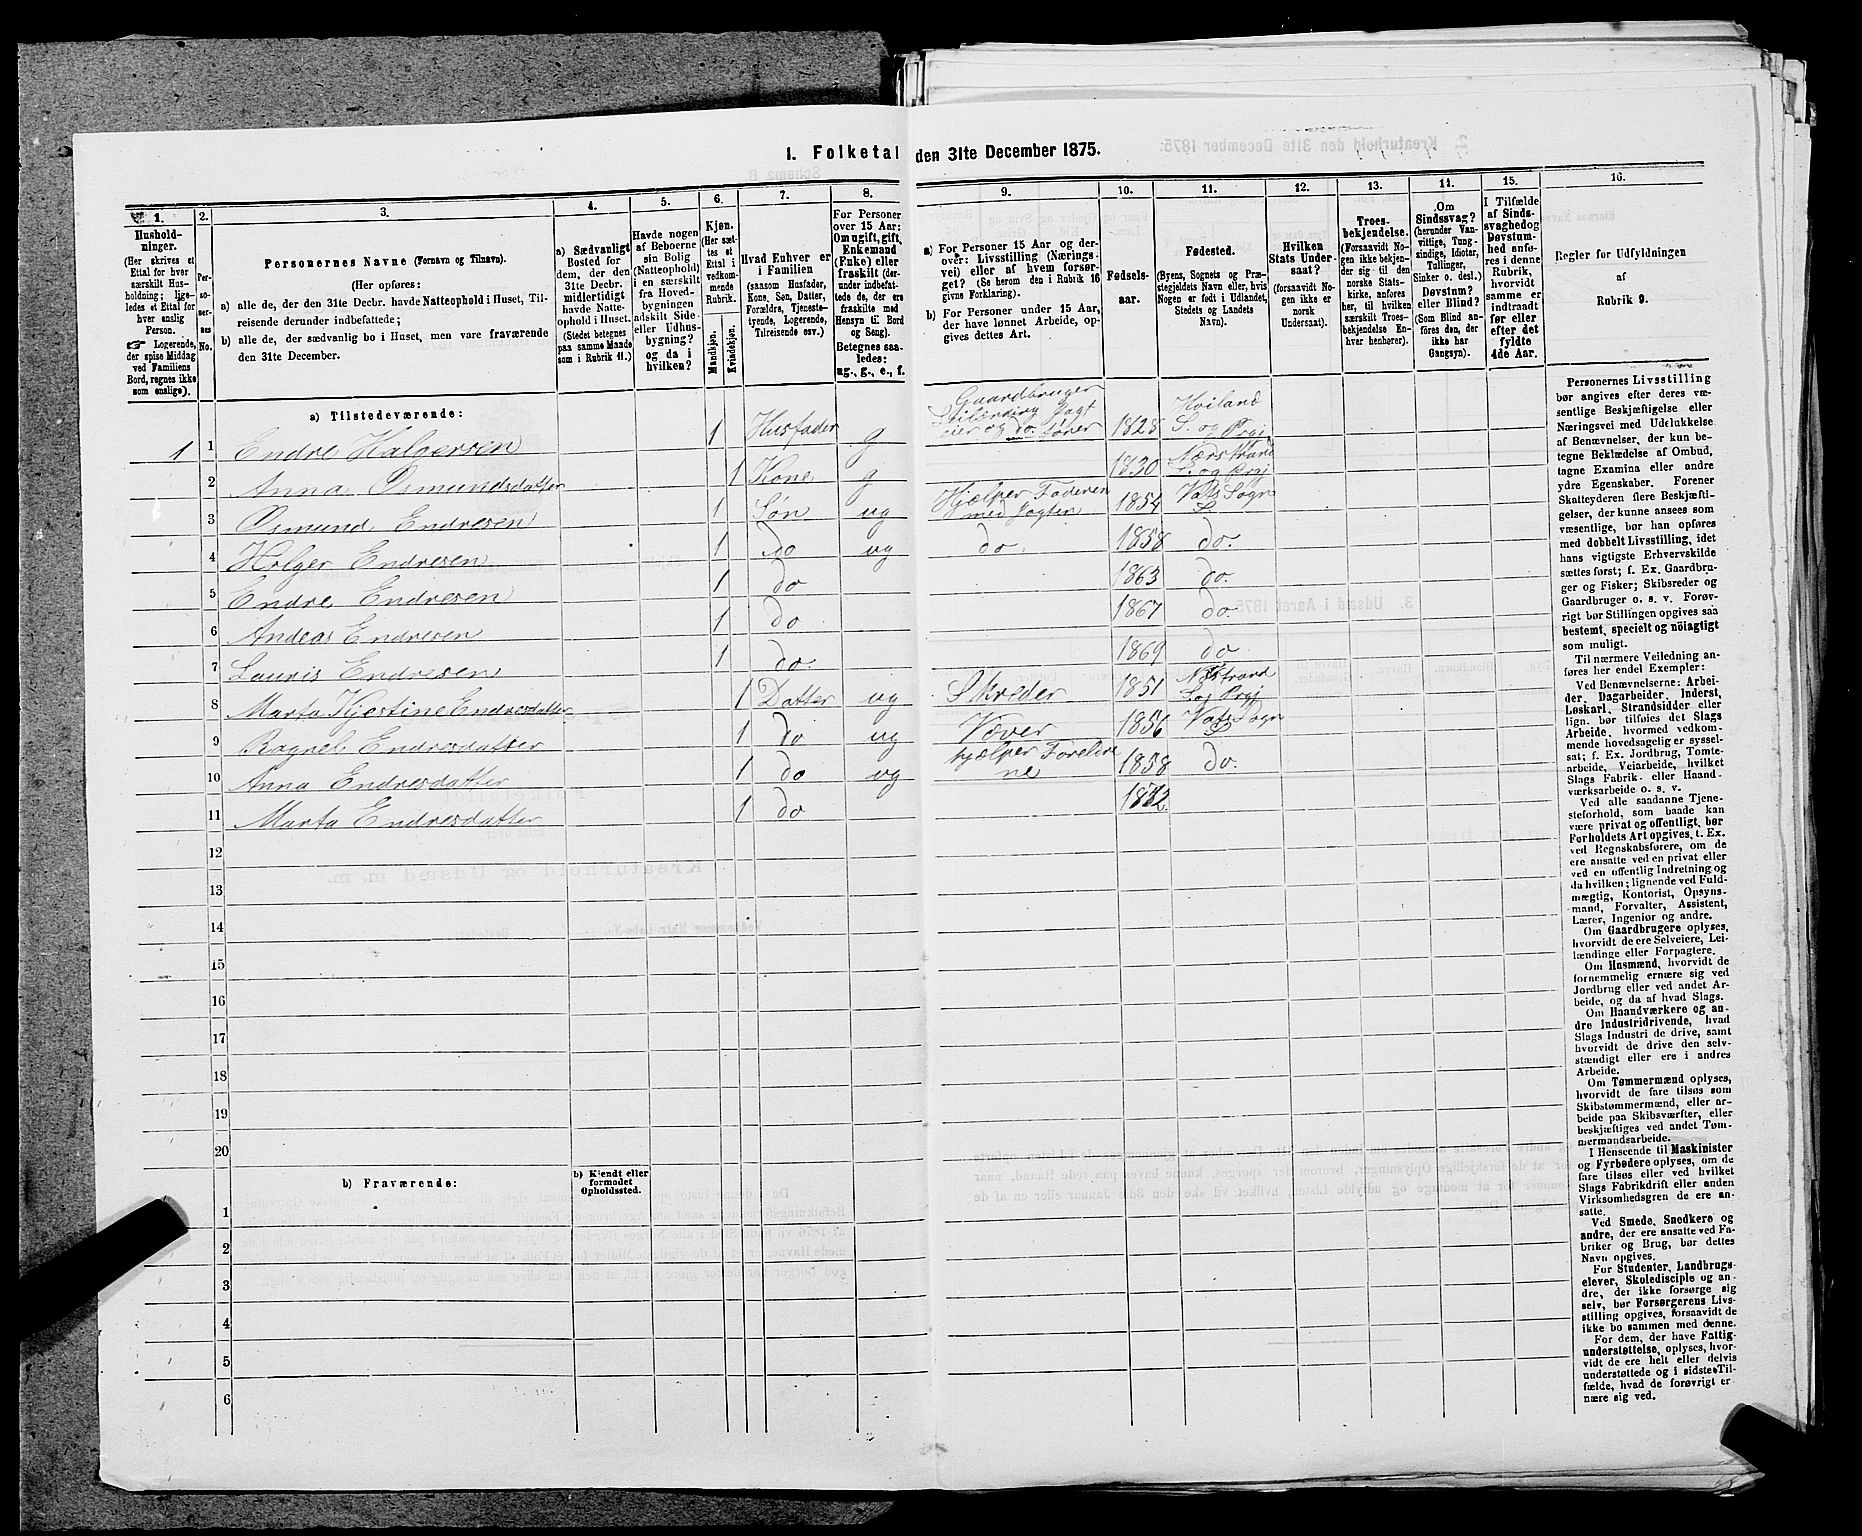 1. Folketal den 31te December 1875.
1.
Husholdninger.
(Her skrives et
Ettal for hver
særskilt Husholdning; ligeledes
et Ettal for
hver enslig
Person.
☞ Logerende,
der spise Middag
ved Familiens
Bord, regnes ikke
som enslige).
2.
Personernes
No.
3.
Personernes Navne (Fornavn og Tilnavn).
(Her opføres:
a) alle de, der den 31te Decbr. havde Natteophold i Huset, Tilreisende
derunder indbefattede;
b) alle de, der sædvanlig bo i Huset, men vare fraværende
den 31te December.
4.
a) Sædvanligt
Bosted for
dem, der den
31te Decbr.
midlertidigt
havde Natteophold
i Huset.
(Stedet betegnes
paa samme Maade
som i Rubrik 11.)
5.
Havde nogen
af Beboerne
sin Bolig
(Natteophold)
i en særskilt
fra Hovedbygningen
adskilt Side-
eller Udhusbygning?
og da i
hvilken?
6.
Kjøn.
(Her sættes
et
Ettal i
vedkommende
Rubrik.
Mandkjøn.
Kvindekjøn.
7.
Hvad Enhver er
i Familien
(saasom Husfader,
Kone, Søn, Datter,
Forældre, Tjenestetyende,
Logerende,
Tilreisende osv.).
8.
For Personer
over 15 Aar:
Om ugift, gift,
Enkemand
(Enke) eller
fraskilt (derunder
indbefattede
de, der ere
fraskilte med
Hensyn til Bord
og Seng).
Betegnes saaledes:
ug., g., e., f.
9.
a) For Personer 15 Aar og derover:
Livsstilling (Næringsvei)
eller af hvem forsørget?
(Se herom den i Rubrik 16
givne Forklaring).
b) For Personer under 15 Aar,
der have lønnet Arbeide, opgives
dettes Art.
10.
Fødselsaar.
11.
Fødested.
(Byens, Sognets og Præstegjeldets
Navn eller, hvis
Nogen er født i Udlandet,
Stedets og Landets
Navn).
12.
Hvilken
Stats Undersaat?
(forsaavidt Nogen
ikke er
norsk
Undersaat).
13.
Troesbekjendelse.
(Forsaavidt Nogen
ikke bekjender
sig til den
norske Statskirke,
anføres
her, til hvilken
særskilt Troesbekjendelse
Enhver
henhører).
14.
Om
Sindssvag?
(herunder Vanvittige,
Tungsindige,
Idioter,
Tullinger,
Sinker o. desl.)
Døvstum?
eller Blind?
(Som Blind anføres
den, der
ikke har
Gangsyn).
15.
I Tilfælde
af Sindssvaghed
og
Døvstumhed
anføres
i denne
Rubrik,
hvorvidt
samme er
indtraadt
før eller
efter det
fyldte
4de Aar.
16.
Regler for Udfyldningen
af
Rubrik 9.
a) Tilstedeværende:
1 1 Endre Halgersen 1 Husfader g Gaardbruger Leilending Jagt eier og do. fører 1828 Høiland S. og Prgj
2 Anna Osmundsdatter 1 Kone g 1830 Nærstrand S. og Prgj
3 Osmund Endresen 1 Søn ug Hjælper Faderen med Jagten 1854 Vats Sogn
4 Holger Endresen 1 do ug do. 1858 do.
5 Endre Endresen 1 do 1863 do.
6 Andeas Endresen 1 do 1867 do.
7 Lauris Endresen 1 do. 1869 do
8 Marta Kjestine Endresdatter 1 Datter ug Skreder 1851 Nestrand S og Prgj
9 Ragnel Endresdatter 1 do ug Væver 1856 Vats Sogn
10 Anna Endresdatter 1 do ug hjælper Foreldrene 1858 do.
11 Marta Endresdatter 1 do 1872
12
13
14
15
16
17
18
19
20
b) Fraværende:
b) Kjendt eller
formodet
Opholdssted.
1
2
3
4
5
6
Personernes Livsstilling
bør angives efter deres væsentlige
Beskjæftigelse eller
Næringsvei med Udelukkelse
af Benævnelser, der kun betegne
Beklædelse af Ombud,
tagne Examina eller andre
ydre Egenskaber. Forener
Skatteyderen flere Beskjæftigelser,
der kunne ansees som
væsentlige, bør han opføres
med dobbelt Livsstilling, idet
hans vigtigste Erhvervskilde
sættes først; f. Ex. Gaardbruger
og Fisker; Skibsreder og
Gaardbruger o. s. v. Forøvrigt
bør Stillingen opgives saa
bestemt, specielt og nöiagtigt
som muligt.
Til nærmere Veiledning anføres
her endel Exempler:
Ved Benævnelserne: Arbeider,
Dagarbeider, Inderst,
Løskarl, Strandsidder eller
lign. bør tilføies det Slags
Arbeide, hvormed vedkommende
hovedsagelig er sysselsat;
f. Ex. Jordbrug, Tomtearbeide,
Veiarbeide, hvilket
Slags Fabrik- eller Haandværksarbeide
o. s. v.
Ved alle saadanne Tjenesteforhold,
som baade kan
være privat og offentligt, bør
Forholdets Art opgives, t. Ex.
ved Regnskabsførere, om de
ere ansatte ved en privat eller
ved en offentlig Indretning og
da hvilken; lignende ved Fuldmægtig,
Kontorist, Opsynsmand,
Forvalter, Assistent,
Lærer, Ingeniør og andre.
Om Gaardbrugere oplyses,
hvorvidt de ere Selveiere, Leilændinge
eller Forpagtere.
Om Husmænd, hvorvidt de
fornemmelig ernære sig ved
Jordbrug eller ved andet Arbeide,
og da af hvad Slags.
Om Haandværkere og andre
Industridrivende, hvad
Slags Industri de drive, samt
hvorvidt de drive den selvstændigt
eller ere i andres
Arbeide.
Om Tømmermænd oplyses,
hvorvidt de fare tilsøs som
Skibstømmermænd, eller arbeide
paa Skibsværfter, eller
beskjæftiges ved andet Tømmermandsarbeide.
I Henseende til Maskinister
og Fyrbødere oplyses, om de
fare tilsøs eller ved hvilket
Slags Fabrikdrift eller anden
Virksomhedsgren de ere ansatte.
Ved Smede, Snedkere og
andre, der ere ansatte ved Fabriker
og Brug, bør dettes
Navn opgives.
For Studenter, Landbrugselever,
Skoledisciple og andre,
der ikke forsørge sig
selv, bør Forsørgerens Livsstilling
opgives, forsaavidt de
ikke bo sammen med denne.
For dem, der have Fattigunderstøttelse,
oplyses, hvorvidt
de ere helt eller delvis
understøttede og i sidste Tilfælde,
hvad de forøvrigt ernære
sig ved.